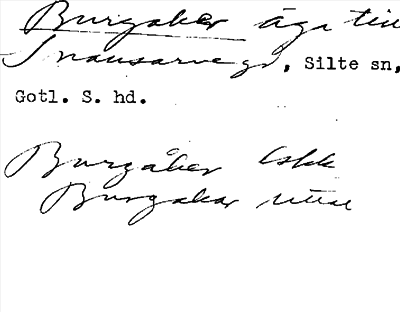 Burgaker äga till
Snausarve gd, Silte sn,
Gotl. S. hd.
Burgåker Iskk
Burgakar